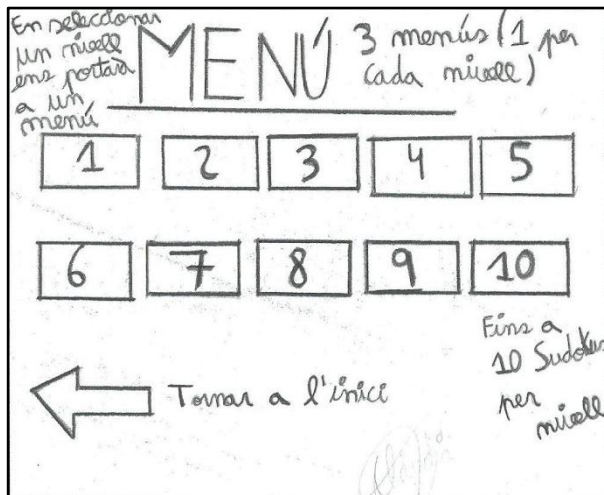 En seleccionar
un nivell
ens portarà
a un
menú
MENÚ
3 menús (1 per
cada nivell)
1 2 3 4 5
6 7 8 9 10
Tornar a l'inici
Fins a
10 Sudokus
per
nivell